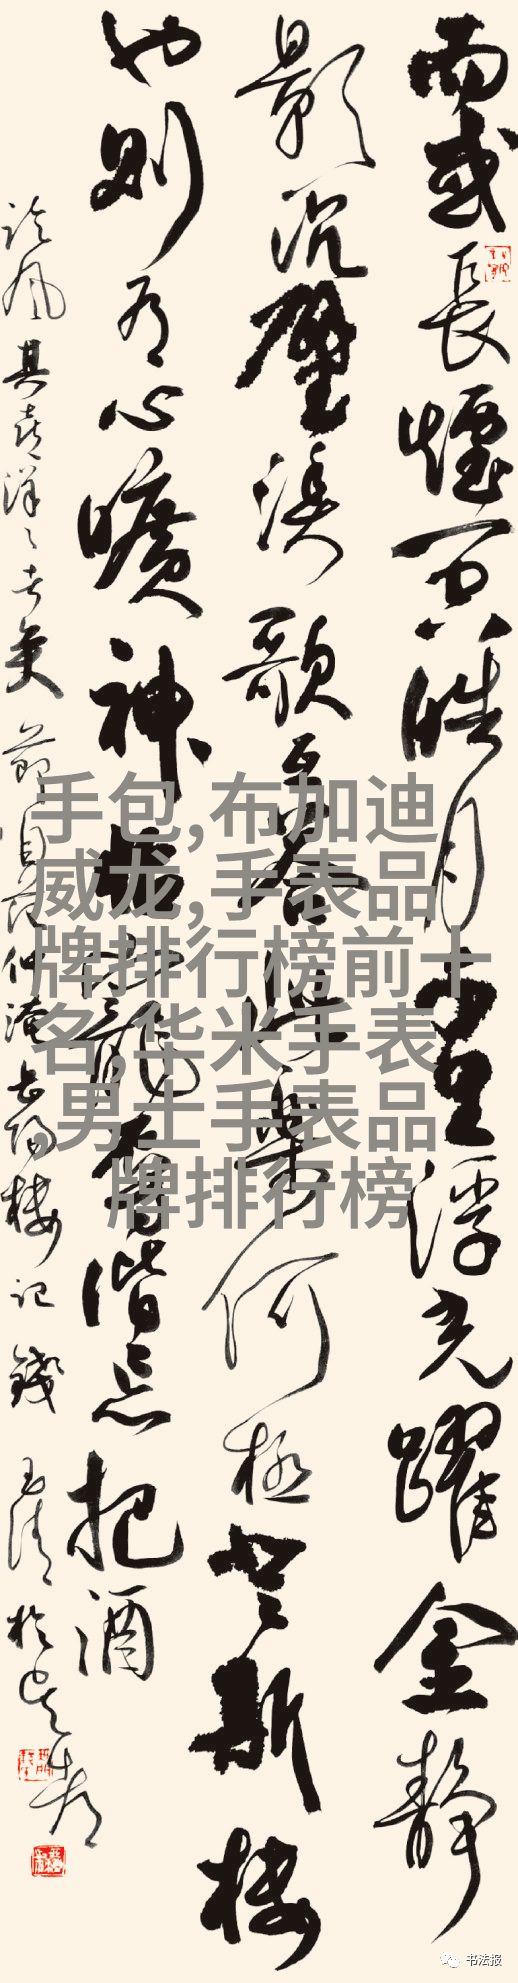 而或長煙一空皓月千里浮光躍金靜
影沉璧漁歌互答此樂何極登斯樓
也則有心曠神怡寵辱偕忘把酒
臨風其喜洋洋者矣 節自范仲淹岳陽樓記 錢玉清於
手包,布加迪
威龙,手表品
牌排行榜前十
名,华米手表,
男士手表品
牌排行榜
书法报